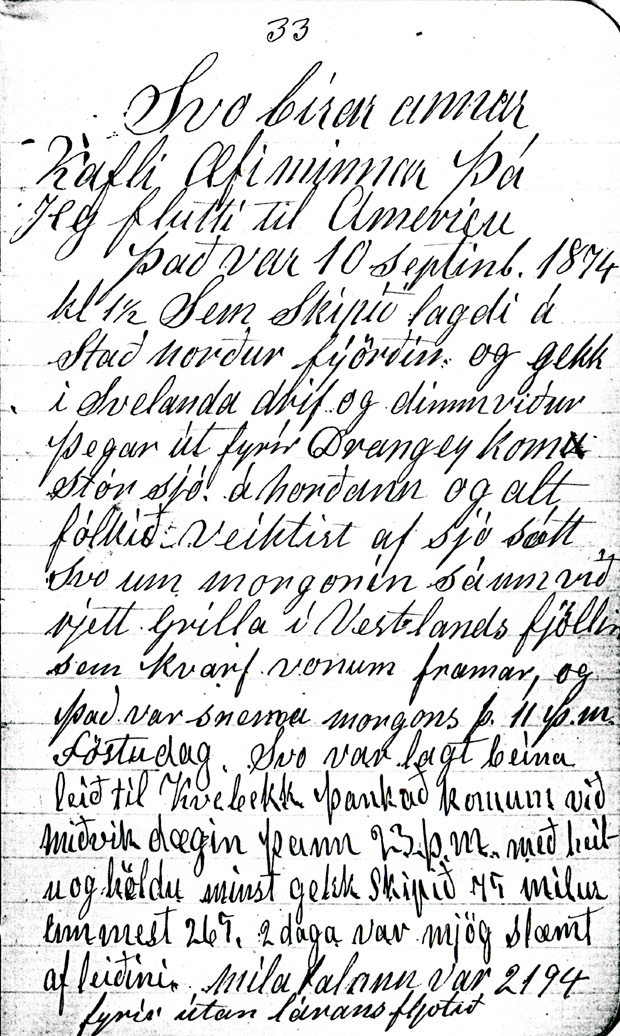 33
Svo birar annar
Kafli Æfi minnar Þá
Jeg flutti til Americu
Það var 10 septinb. 1874
kl 1½ Sem Skipið lagdi á
Stað norður fjörðin. og gekk
i Svelanda drif og dimmviður
Þegar út fyrir Drangey kom
stór sjó. á norðann og alt
fólkið veiktist af sjó sótt
Svo um morgonin sáum við
rjett Grilla i Vestlands fjöllin
sem kvarf vonum framar, og
það var snema morgons þ. 11 þ.m.
Föstudag. Svo var lagt beina
leið til Kvebekk þankað komum við
miðvik dægin þann 23. þ.m. með heit-
u og köldu minst gekk Skipið 75 milur
enn mest 267. 2 daga var mjög slæmt
af leiðini. míla talann var 2194
fyrir útan lárans fljotið